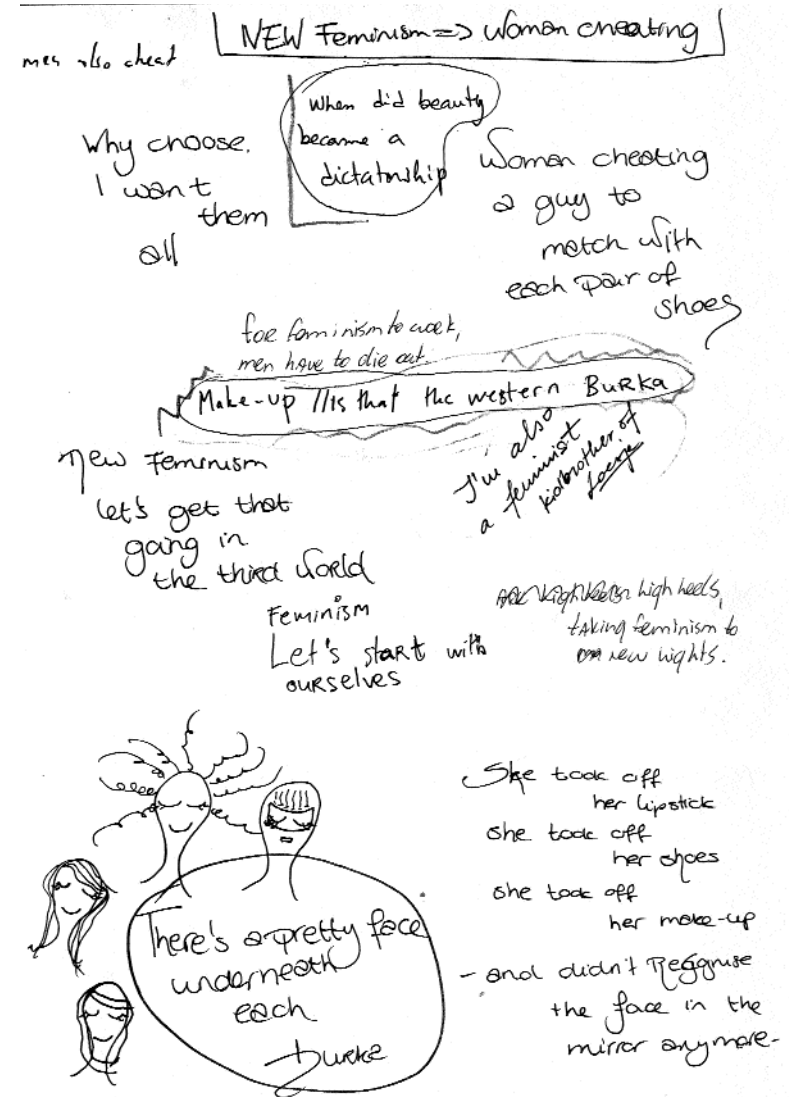 NEW Feminism => Woman cheating
men also cheat
When did beauty
become a
dictatorship
Why choose.
I want
them
all
Woman cheating
a guy to
match with
each pair of
shoes
for feminism to work,
men have to die out.
Make-up // is that the western Burka
I'm also
a feminist
kidbrother of
New Feminism
Let's get that
going in
the third world
Feminism
Let's start with
ourselves
high heels,
taking feminism to
new hights.
She took off
her lipstick
she took off
her shoes
she took off
her make-up
- and didn't
the face in the
mirror anymore-
There's a pretty face
underneath
each
burka